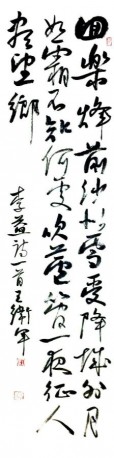 回樂烽前沙似雪受降城外月
如霜不知何處吹蘆管一夜征人
盡望鄉
李益詩一首王衛軍